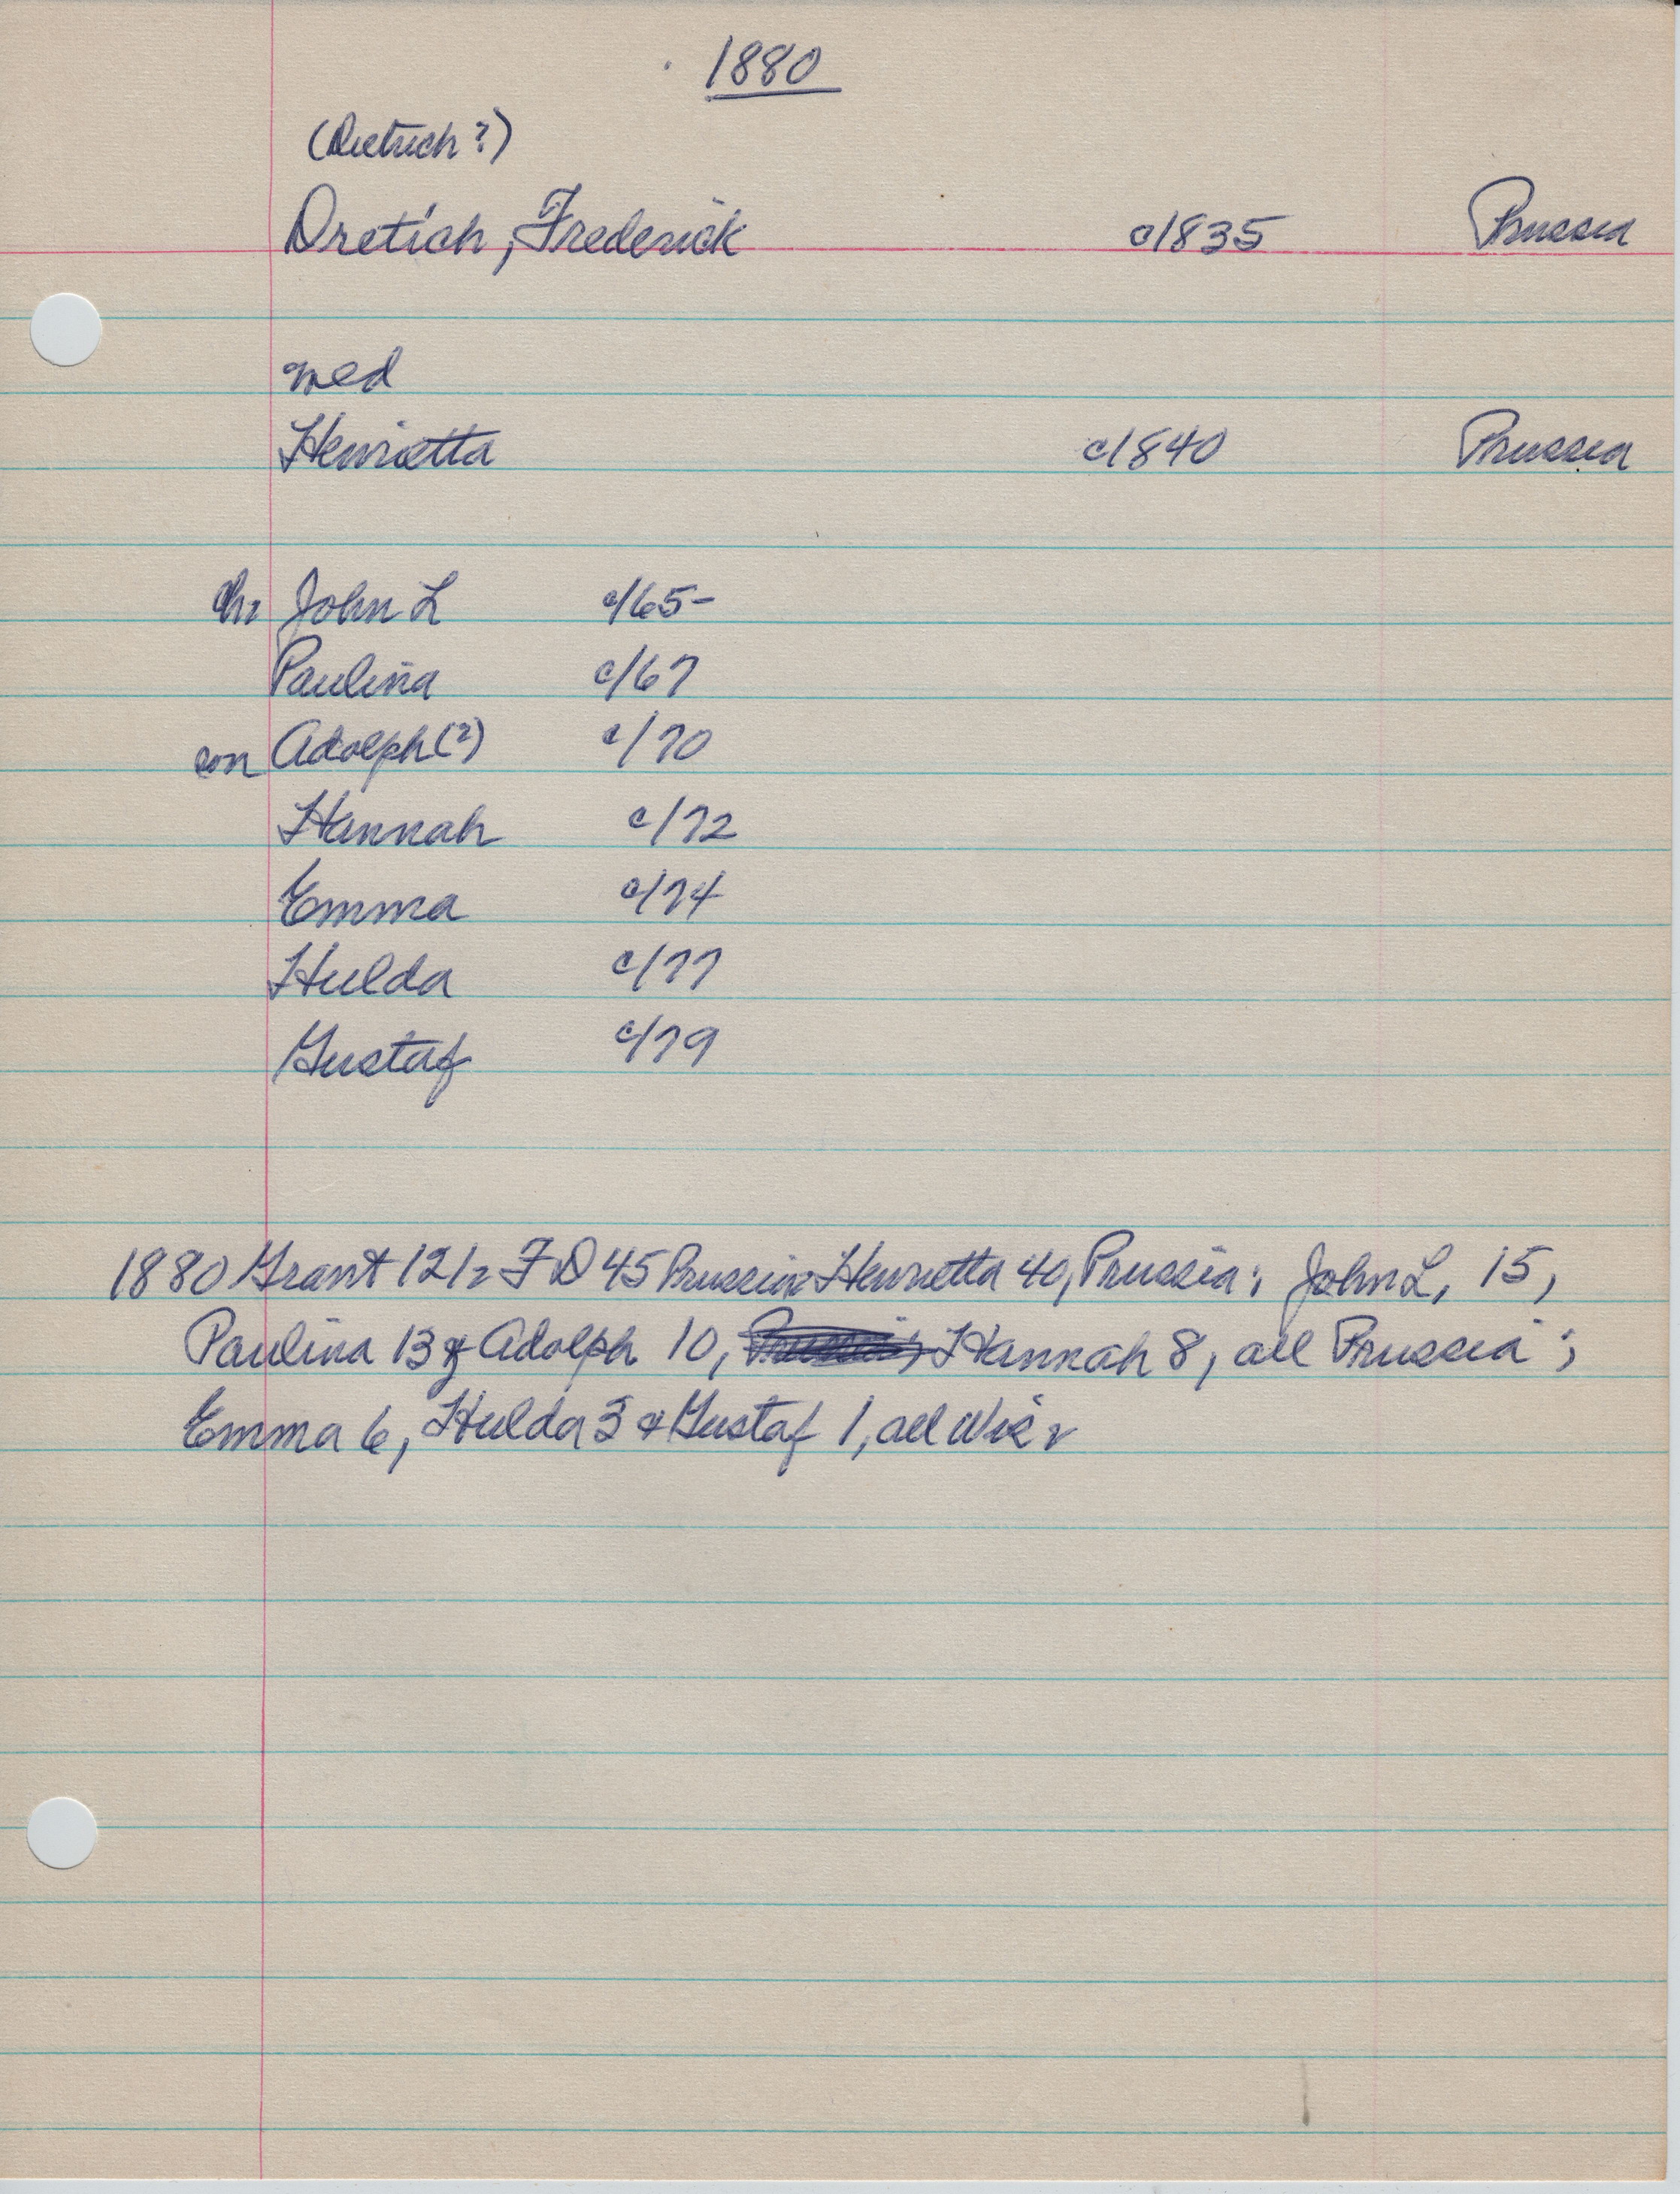 1880
(Dietrich?)
Dretich, Frederick c1835 Prussia
med
Henrietta c1840 Prussia
ch: John L c/65-
Paulina c/67
son Adolph(?) c/70
Hannah c/72
Emma c/74
Hulda c/77
Gustaf c/79
1880 Grant 12/2 FD 45 Prussia: Henrietta 40, Prussia; John L, 15,
Paulina 13 & Adolph 10, Hannah 8, all Prussia;
Emma 6, Hulda 3 & Gustaf 1, all Wis